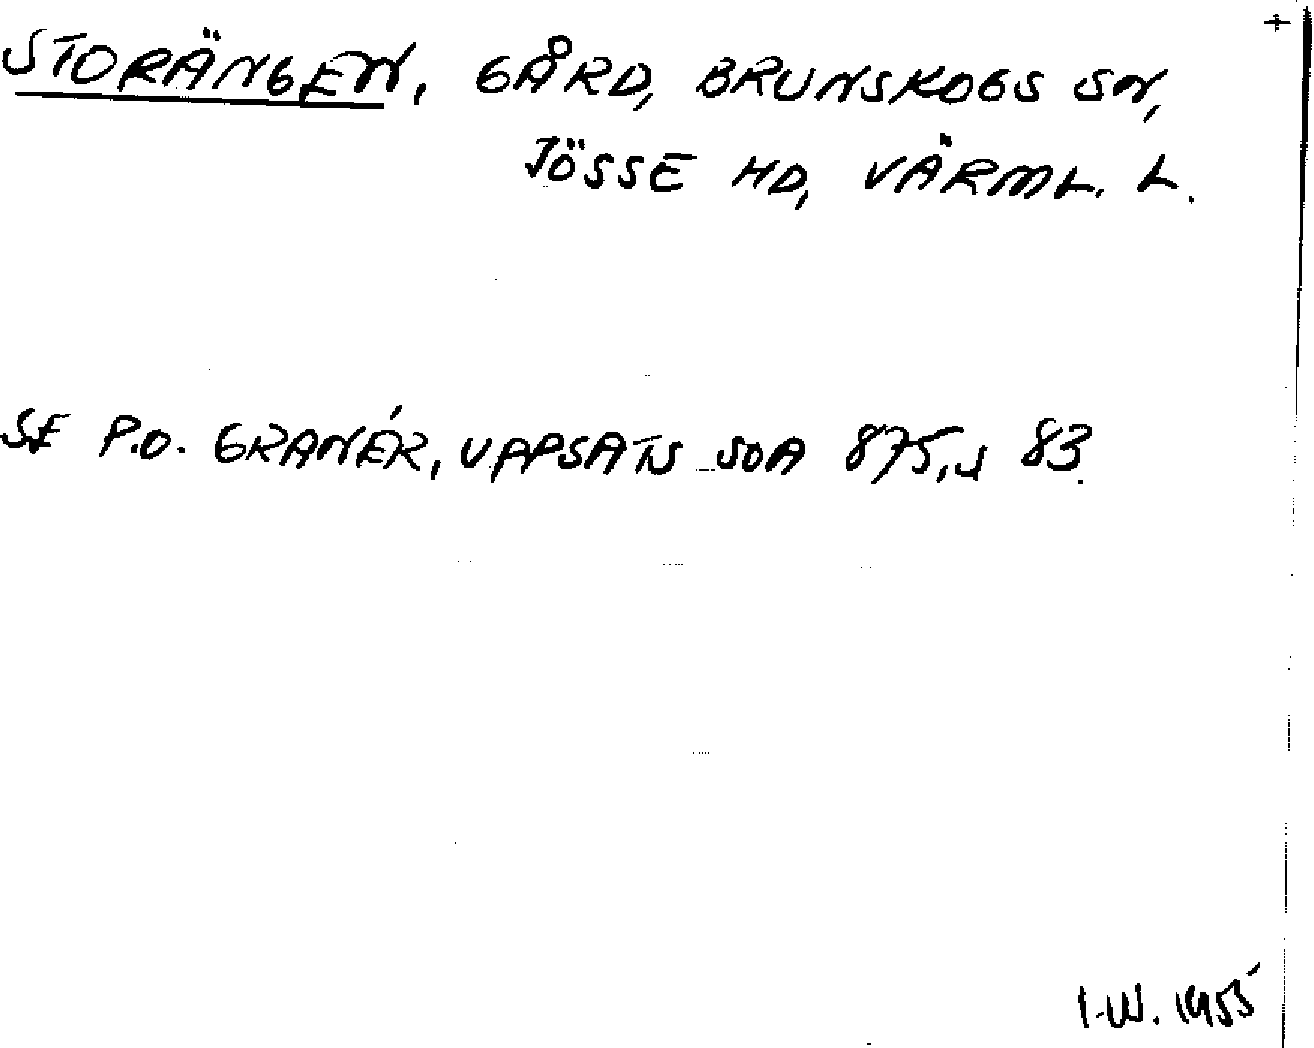 +
STORÄNGEN, GÅRD, BRUNSKOGS SN,
JÖSSE HD, VÄRML. L.
SE P.O. GRANÉR, UPPSATS SOA 875, s 83.
I.W. 1955